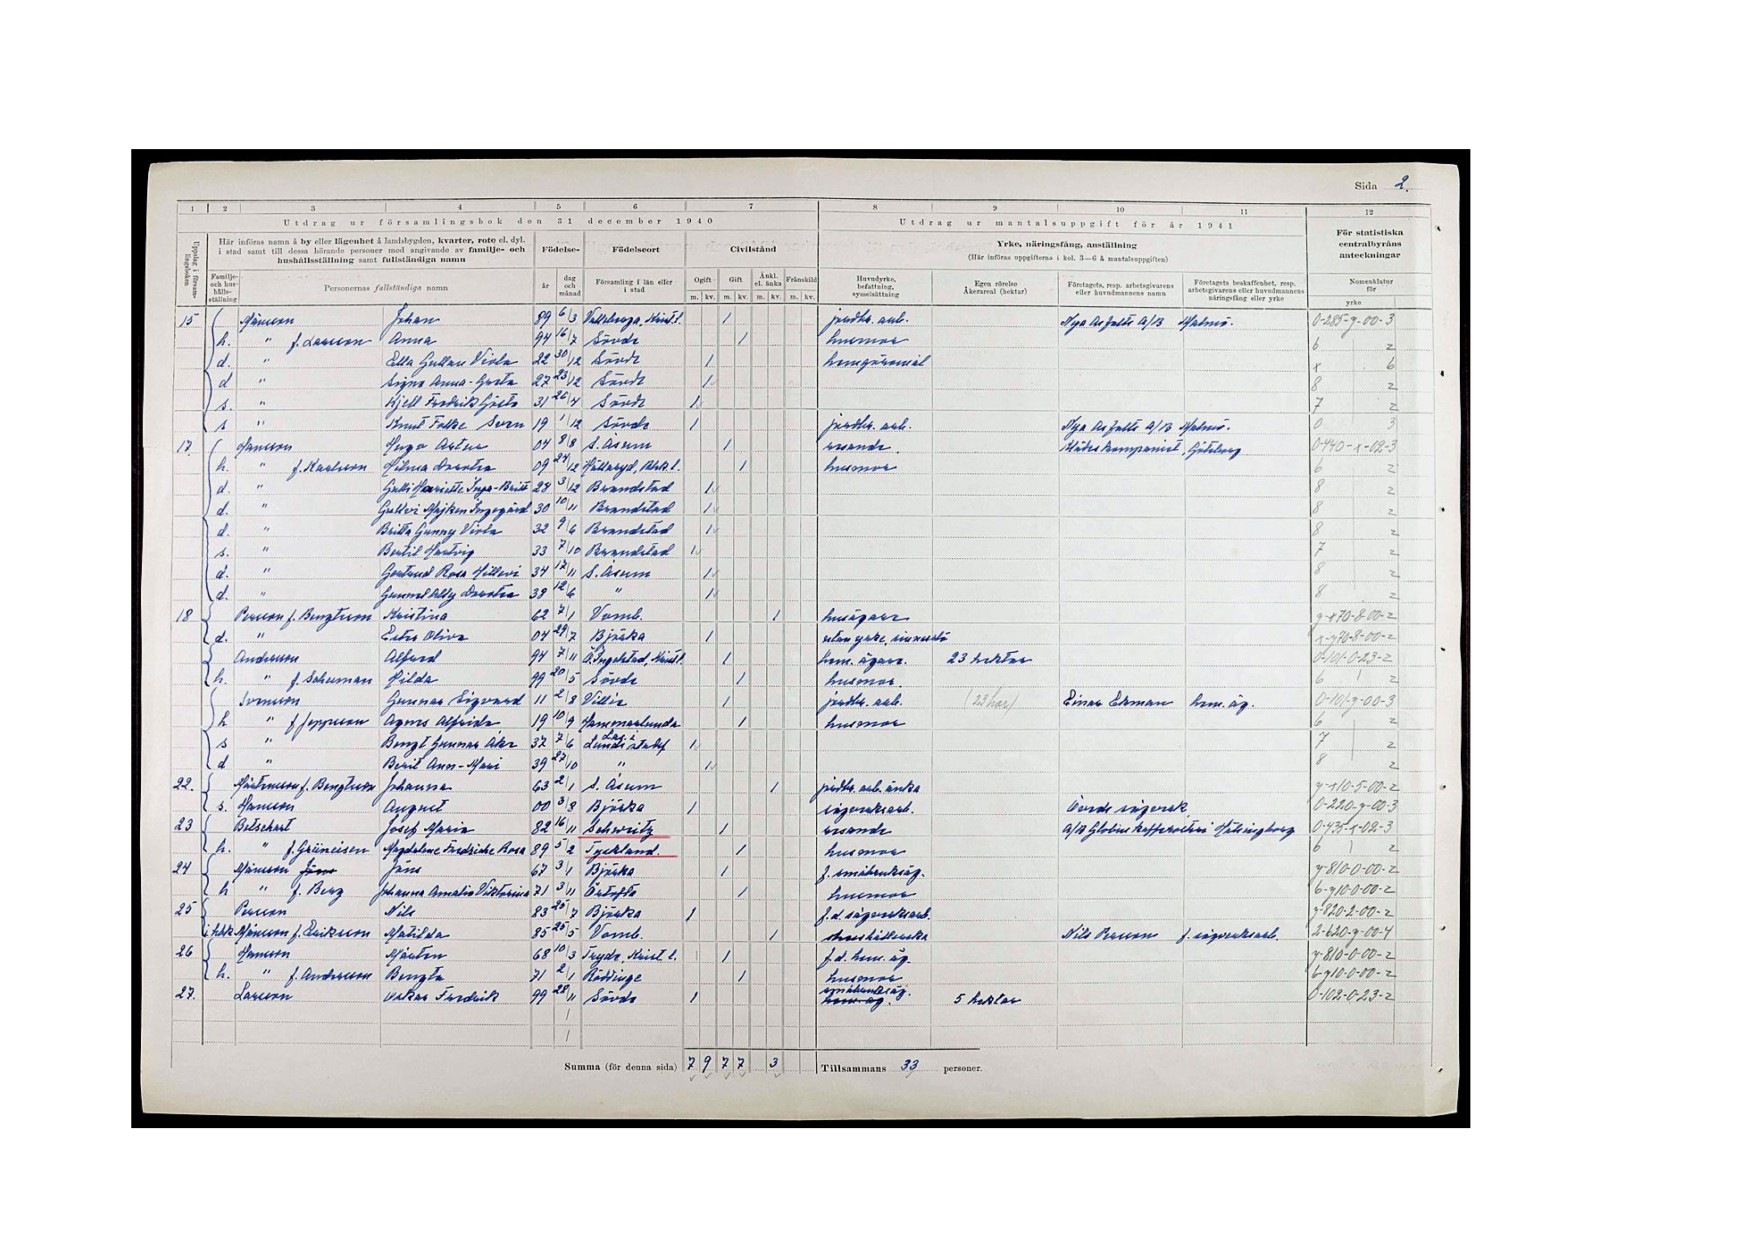 Sida 2.
1 2 3 4 5 6 7 8 9 10 11 12
Utdrag ur församlingsbok den 31 december 1940 Utdrag ur mantalsuppgift för år 1941
Uppslag i församlingsboken
Här införas namn å by eller lägenhet å landsbygden, kvarter, rote el. dyl.
i stad samt till dessa hörande personer med angivande av familje- och
hushållsställning samt fullständiga namn
Födelse- Födelseort Civilstånd
Yrke, näringsfång, anställning
(Här införas uppgifterna i kol. 3—6 å mantalsuppgiften)
För statistiska
centralbyråns
anteckningar
Familje- och hushållsställning
Personernas fullständiga namn
år dag och månad
Församling i län eller i stad
Ogift Gift Änkl. el. änka Frånskild
m. kv. m. kv. m. kv. m. kv.
Huvudyrke, befattning, sysselsättning
Egen rörelse Åkerareal (hektar)
Företagets, resp. arbetsgivarens eller huvudmannens namn
Företagets beskaffenhet, resp. arbetsgivarens eller huvudmannens näringsfång eller yrke
Nomenklatur för
yrke
15 Månsson Johan 89 6/3 Vallberga, Krist.l. / jordbr. arb. Nya Asfalts A/B Malmö. 0-285-y-00-3
h. " f. Larsson Anna 94 16/7 Sövde / husmor 6 2
d. " Ella Gullan Viola 22 30/12 Sövde / hemgöromål x 6
d " Signe Anna-Greta 27 23/12 Sövde / 8 2
s. " Kjell Fredrik Gösta 31 26/4 Sövde / 7 2
s " Knut Folke Sven 19 1/12 Sövde / jordbr. arb. Nya Asfalts A/B Malmö. 0 3
17. Hansson Hugo Artur 04 8/8 S. Åsum / resande Klädeskompaniet, Göteborg 0-440-x-02-3
h. " f. Karlsson Hilma Dorotea 09 24/12 Hällaryd, Blek.l. / husmor 6 2
d. " Inga-Britt 28 3/12 Brandstad / 8 2
d. " Majken Ingegärd 30 10/11 Brandstad / 8 2
d. " Britta Gunny Viola 32 9/6 Brandstad / 8 2
s. " Bertil Hartvig 33 7/10 Brandstad / 7 2
d. " Gertrud Rosa Hillevi 34 17/11 S. Åsum / 8 2
d. " Gunnel Dorotea 38 12/6 " / 8 2
18 Persson f. Bengtsson Kristina 62 7/1 Vomb. / husägare y-x70-8-00-2
d. " Ester Oliva 04 29/7 Björka / utan yrke, sinnesslö x-y70-8-00-2
Andersson Alfred 94 7/11 Ö. Ingelstad, Krist.l. / hem. ägare. 23 hektar 0-101-0-23-2
h. " f. Schuman Hilda 99 20/5 Sövde / husmor 6 2
Svensson Gunnar Sigvard 11 2/8 Villie / jordbr. arb. (23 har) Einar Ekman hem. äg. 0-101-y-00-3
h " f. Jeppsson Agnes Alfrida 19 10/9 Hammarlunda / husmor 6 2
s " Bengt Gunnar Åke 37 7/6 Lunds stadsf / 7 2
d " Berit Ann-Mari 39 27/10 " / 8 2
22. Mårtensson f. Bengtsson Johanna 63 2/1 S. Åsum / jordbr. arb. änka y-x10-5-00-2
s. Hansson August 00 3/8 Björka / sågverksarb. Sövde sågverk 0-220-y-00-3
23 Betschart Josef Maria 82 16/11 Schweitz / resande A/B Globus Kafferosteri Hälsingborg 0-435-x-02-3
h. " f. Grüneisen Magdalene Fredricke Rosa 89 5/2 Tyskland / husmor 6 2
24 Månsson Jöns Jöns 67 3/1 Björka / f. småbruksäg. y-810-0-00-2
h " f. Berg Johanna Amalia Viktorina 71 3/11 Östofta / husmor 6-y10-0-00-2
25 Persson Nils 83 25/7 Björka / f. d. sågverksarb. y-820-2-00-2
Månsson f. Eriksson Matilda 85 25/5 Vomb. / hushållerska Nils Persson f. sågverksarb. 2-620-y-00-4
26 Hansson Mårten 68 10/3 Tryde, Krist.l. / f. d. hem. äg. y-810-0-00-2
h. " f. Andersson Bengta 71 2/1 Röddinge / husmor 6-y10-0-00-2
27. Larsson Oskar Fredrik 99 28/11 Sövde / småbruksäg. hem. äg. 5 hektar 0-102-0-23-2
Summa (för denna sida) 7 9 7 7 3 Tillsammans 33 personer.